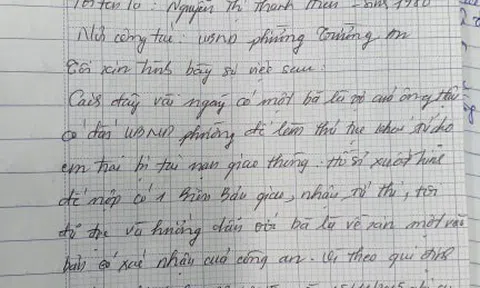 Tôi tên là : Nguyễn Thị Thanh Hiền - sinh 1980
Nơi công tác : UBND phường Trường An
Tôi xin trình bày sự việc sau :
Cách đây vài ngày có một bà là vợ của ông
có đến UBND phường để làm thủ tục khai tử cho
em trai bị tai nạn giao thông. Hồ sơ xuất trình
để nộp có 1 Biên Bản giao, nhận, tử thi, tôi
đã đọc và hướng dẫn bà là về xin một văn
bản có xác nhận của công an. Vì theo qui định